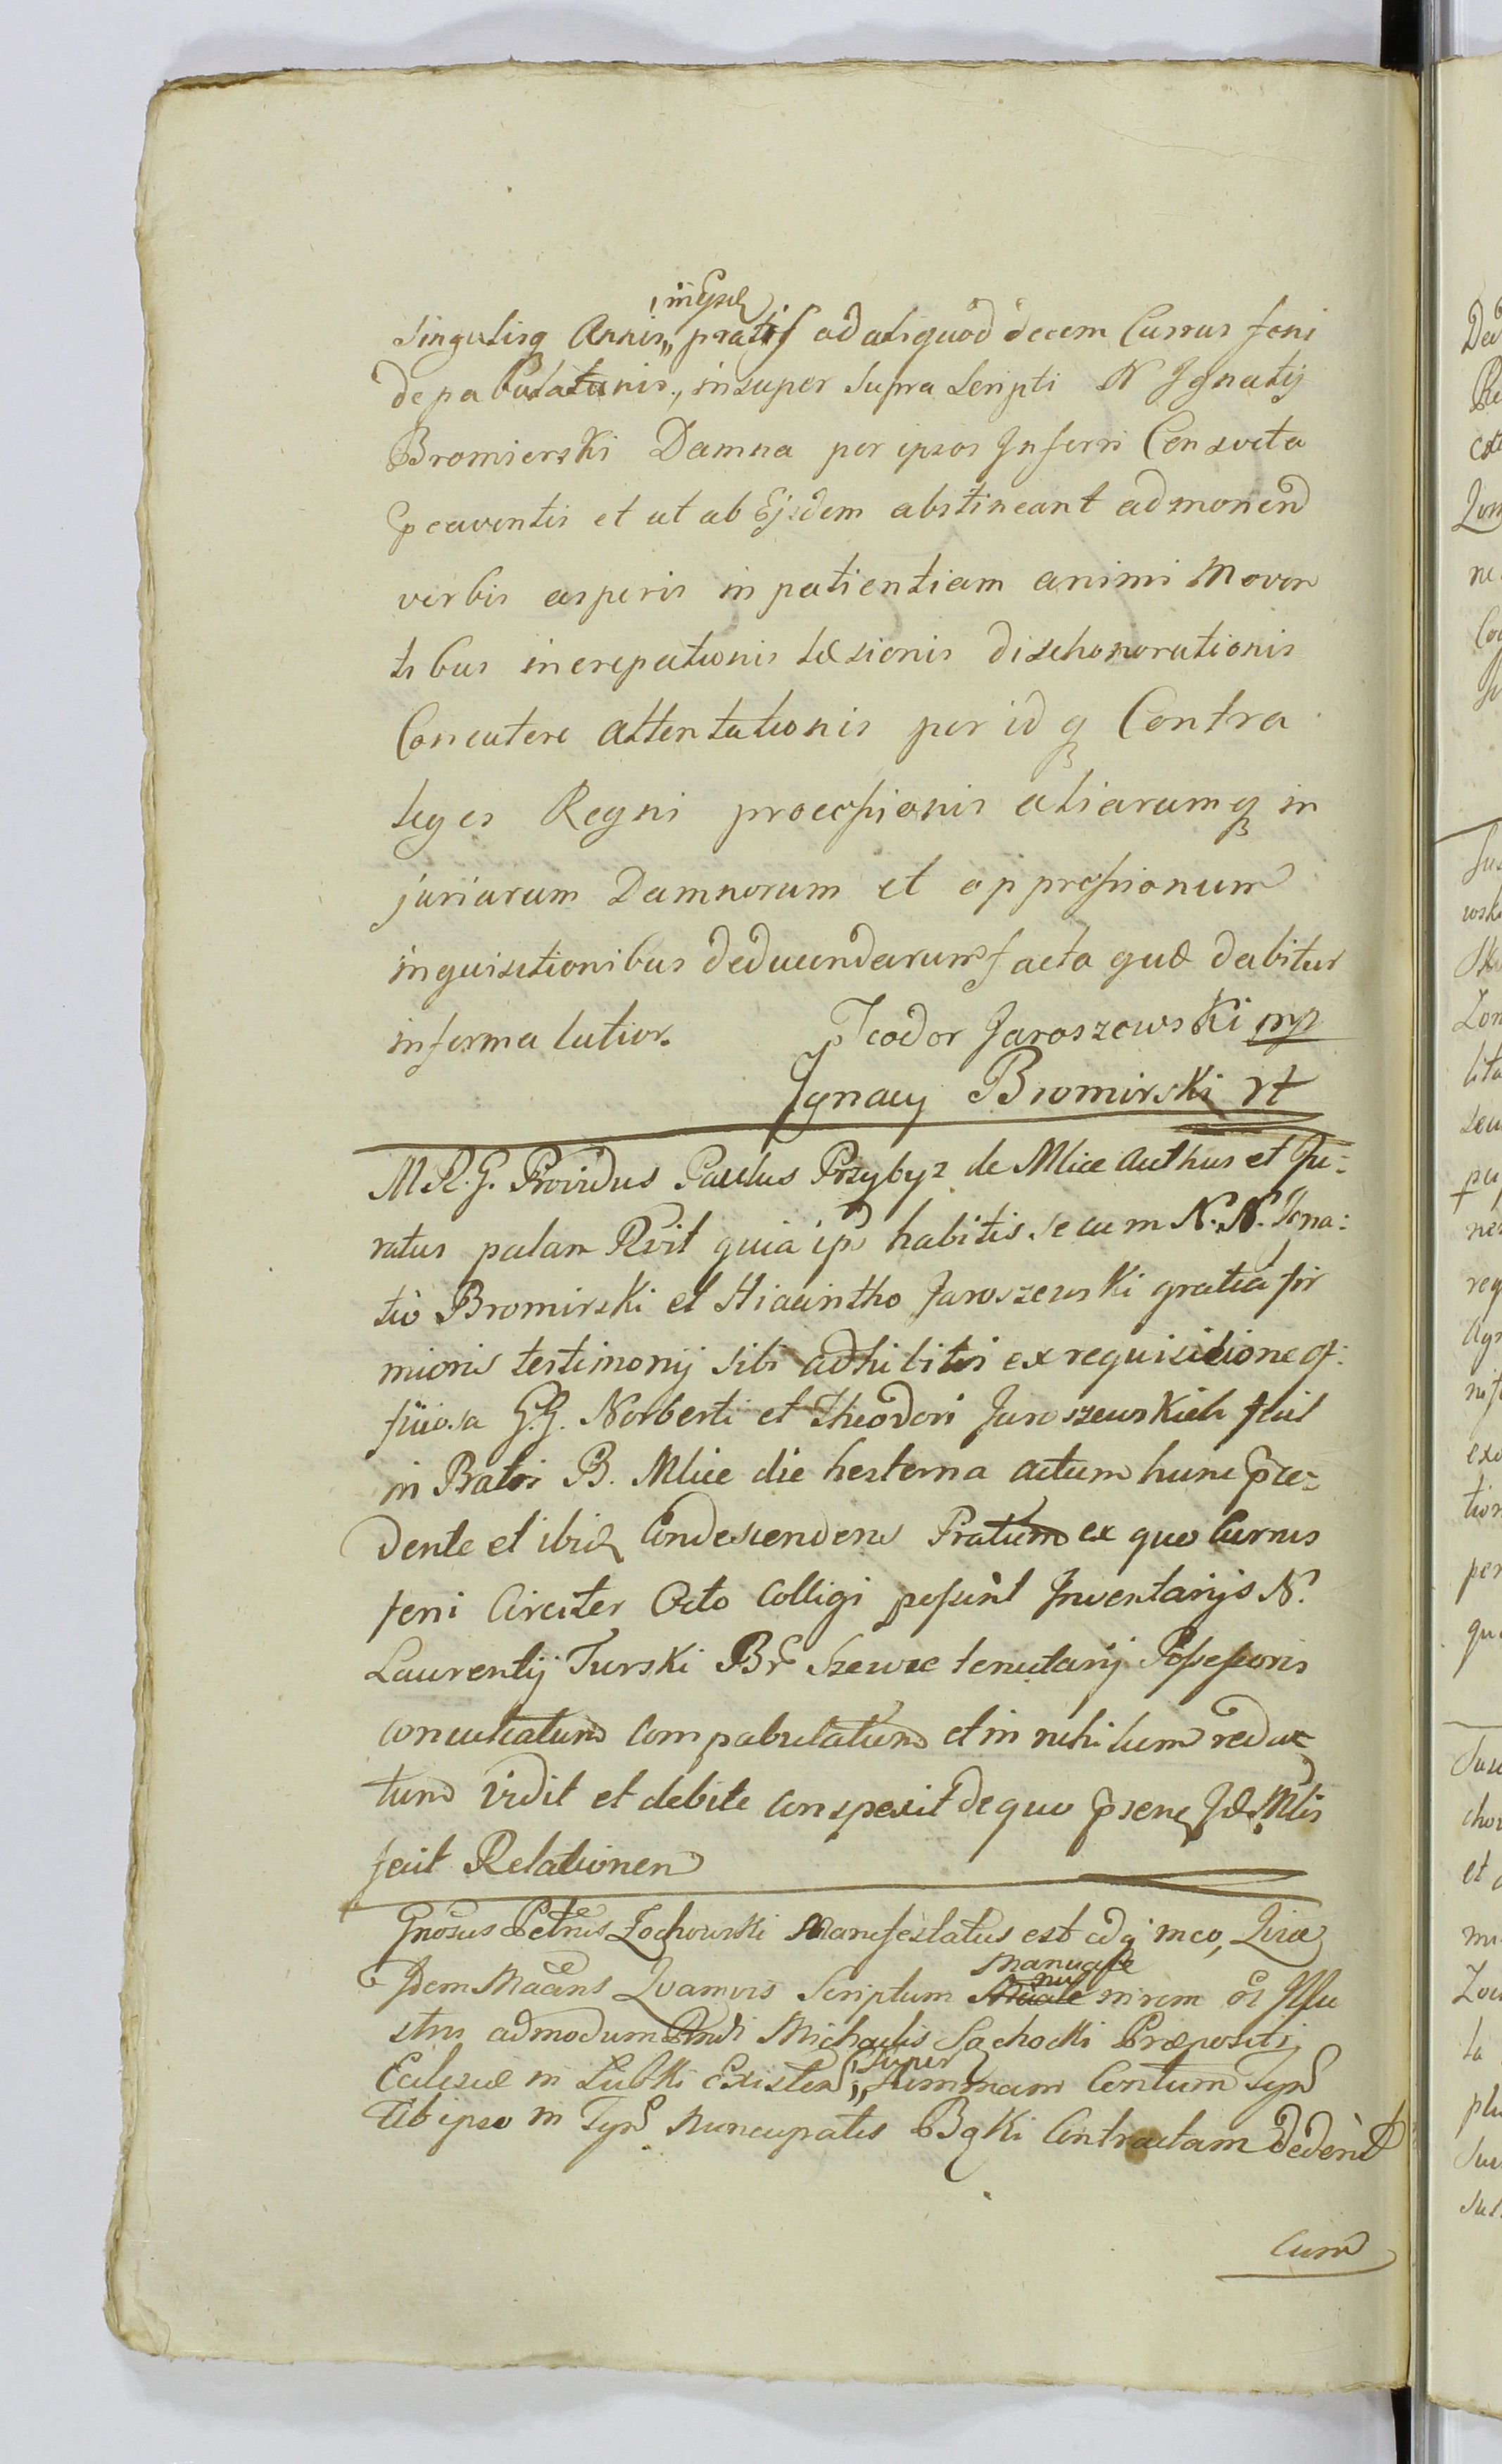 singulisq Annis,, inEisd pratis ad aliquod decem Currus feni
depabulationis, insuper supra scripti N Ignatij
Bromierski Damna per ipsos Inferri Consveta
pcaventis et ut ab Ejsdem abstineant admonen
verbis asperis inpatientiam animi Moven
tibus increpationis læsionis dischonorationis
Concutere attentationis per idq Contra
leges Regni processionis aliarumq in
juriarum Damnorum et oppressionum
inquisitionibus deducendarum facta quæ dabitur
in forma latior. Teodor Jaroszewski mp
Ignacy Bromirski
M R. G. Providus Paulus Przybyz de Mlice Authus et Ju:
ratus palam Rvit quia ips habitis secum N. N. Igna:
tio Bromirski et Hiacintho Jaroszewski gratia fir
mioris testimonij sibi adhibitis ex requisitione of:
fiiosa G.G. Norberti et Theodori Jaroszewskich fuit
in Batis B. Mlice die hesterna actum hunc præ=
dente et ibid Condescendens Pratum ex quo Currus
feni Circiter Octo Colligi possint Inventarijs N.
Laurentij Turski Br Szewce tenutarij Possessoris
conculcatum Compabulatum et in nihilum redac
tum vidit et debite conspexit de quo psens Jd. Mlis
fecit Relationem
Gnosus Petrus Zochowski Manifestatus est
Idem Maans Qvamvis Scriptum Manuale in rem Illu
stris admodum Rndi Michaelis Sochocki Præpositi
Ecclesiæ in Lubki Existen,, super Summam Centum Tyn
Ab ipso in Tyn nuncupatis Bąki Contractam dederit
Cum